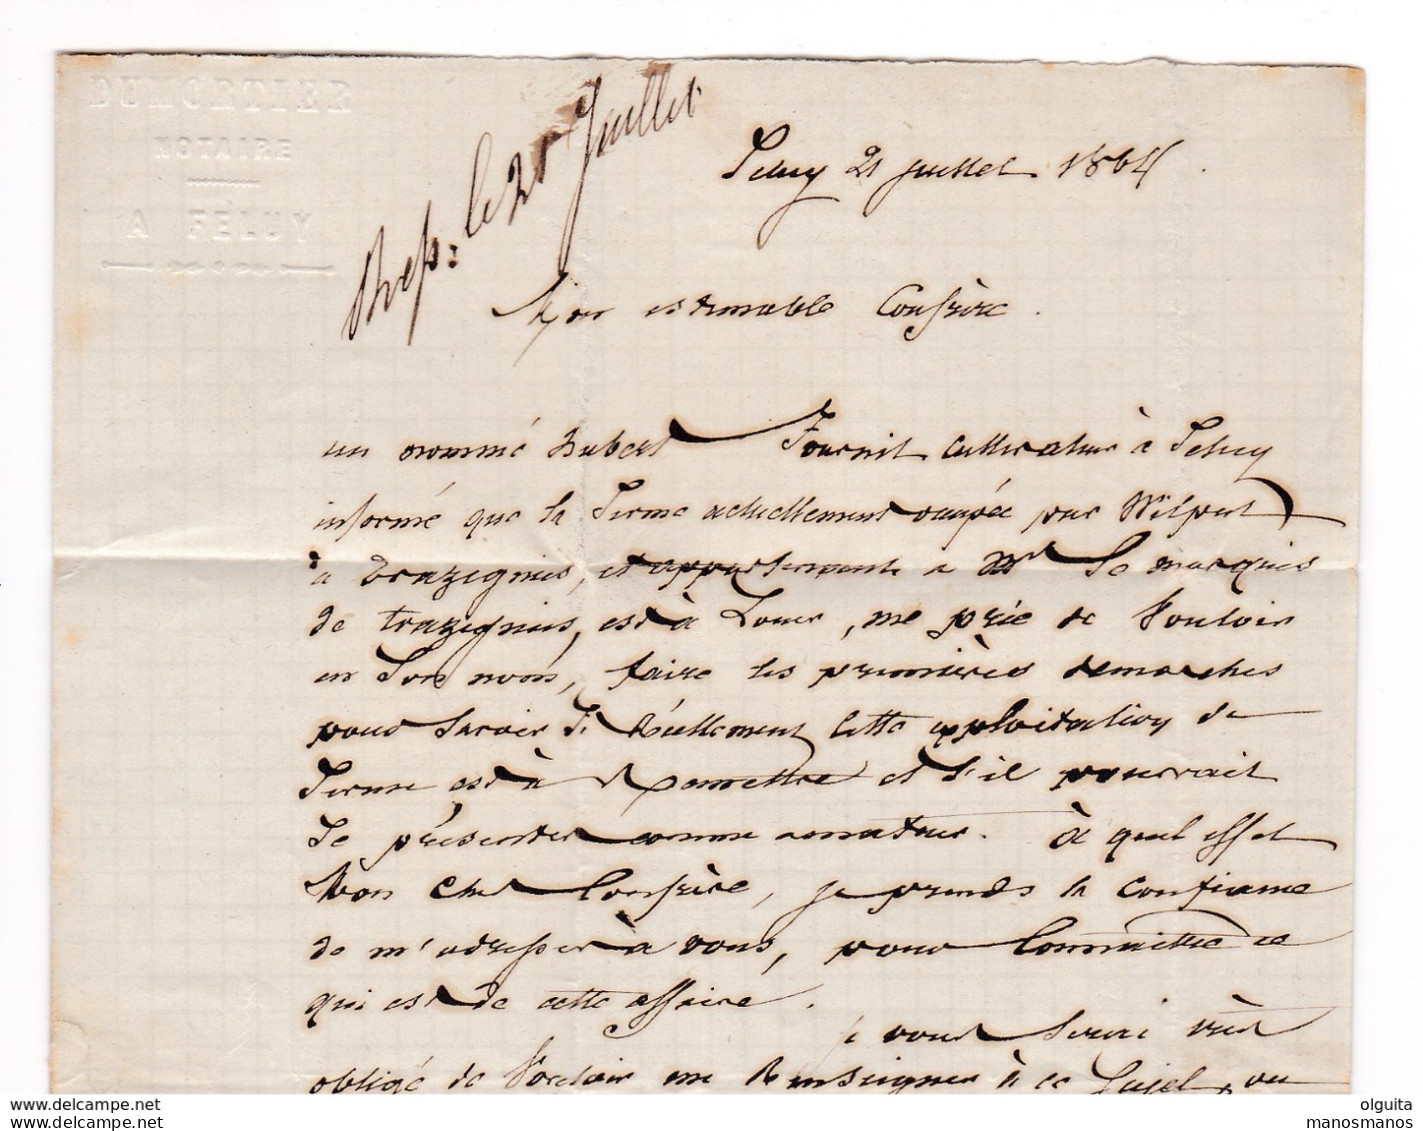 DUMORTIER
NOTAIRE
A FELUY
Rep: le 25 Juillet
Feluy 21 juillet 1864
Mon estimable Confrère.
un nommé Hubert Fournit cultivateur à Feluy
informé que la ferme actuellement occupée par Wilput
à Trazegnies, et appartenante a Mr Le marquis
de trazegnies, est à Louer, me prie de Vouloir
en Son nom, faire les premières demarches
pour Savoir Si Réellement Cette exploitation de
ferme est à Remettre et s'il pourrait
Se présenter comme amateur. à quel effet
Mon cher Confrère, je prends la confiance
de m'adresser à vous, pour Connaître ce
qui est de cette affaire.
je vous Serai très
obligé de Vouloir me Renseigner à ce Sujet, ou
olguita
manosmanos